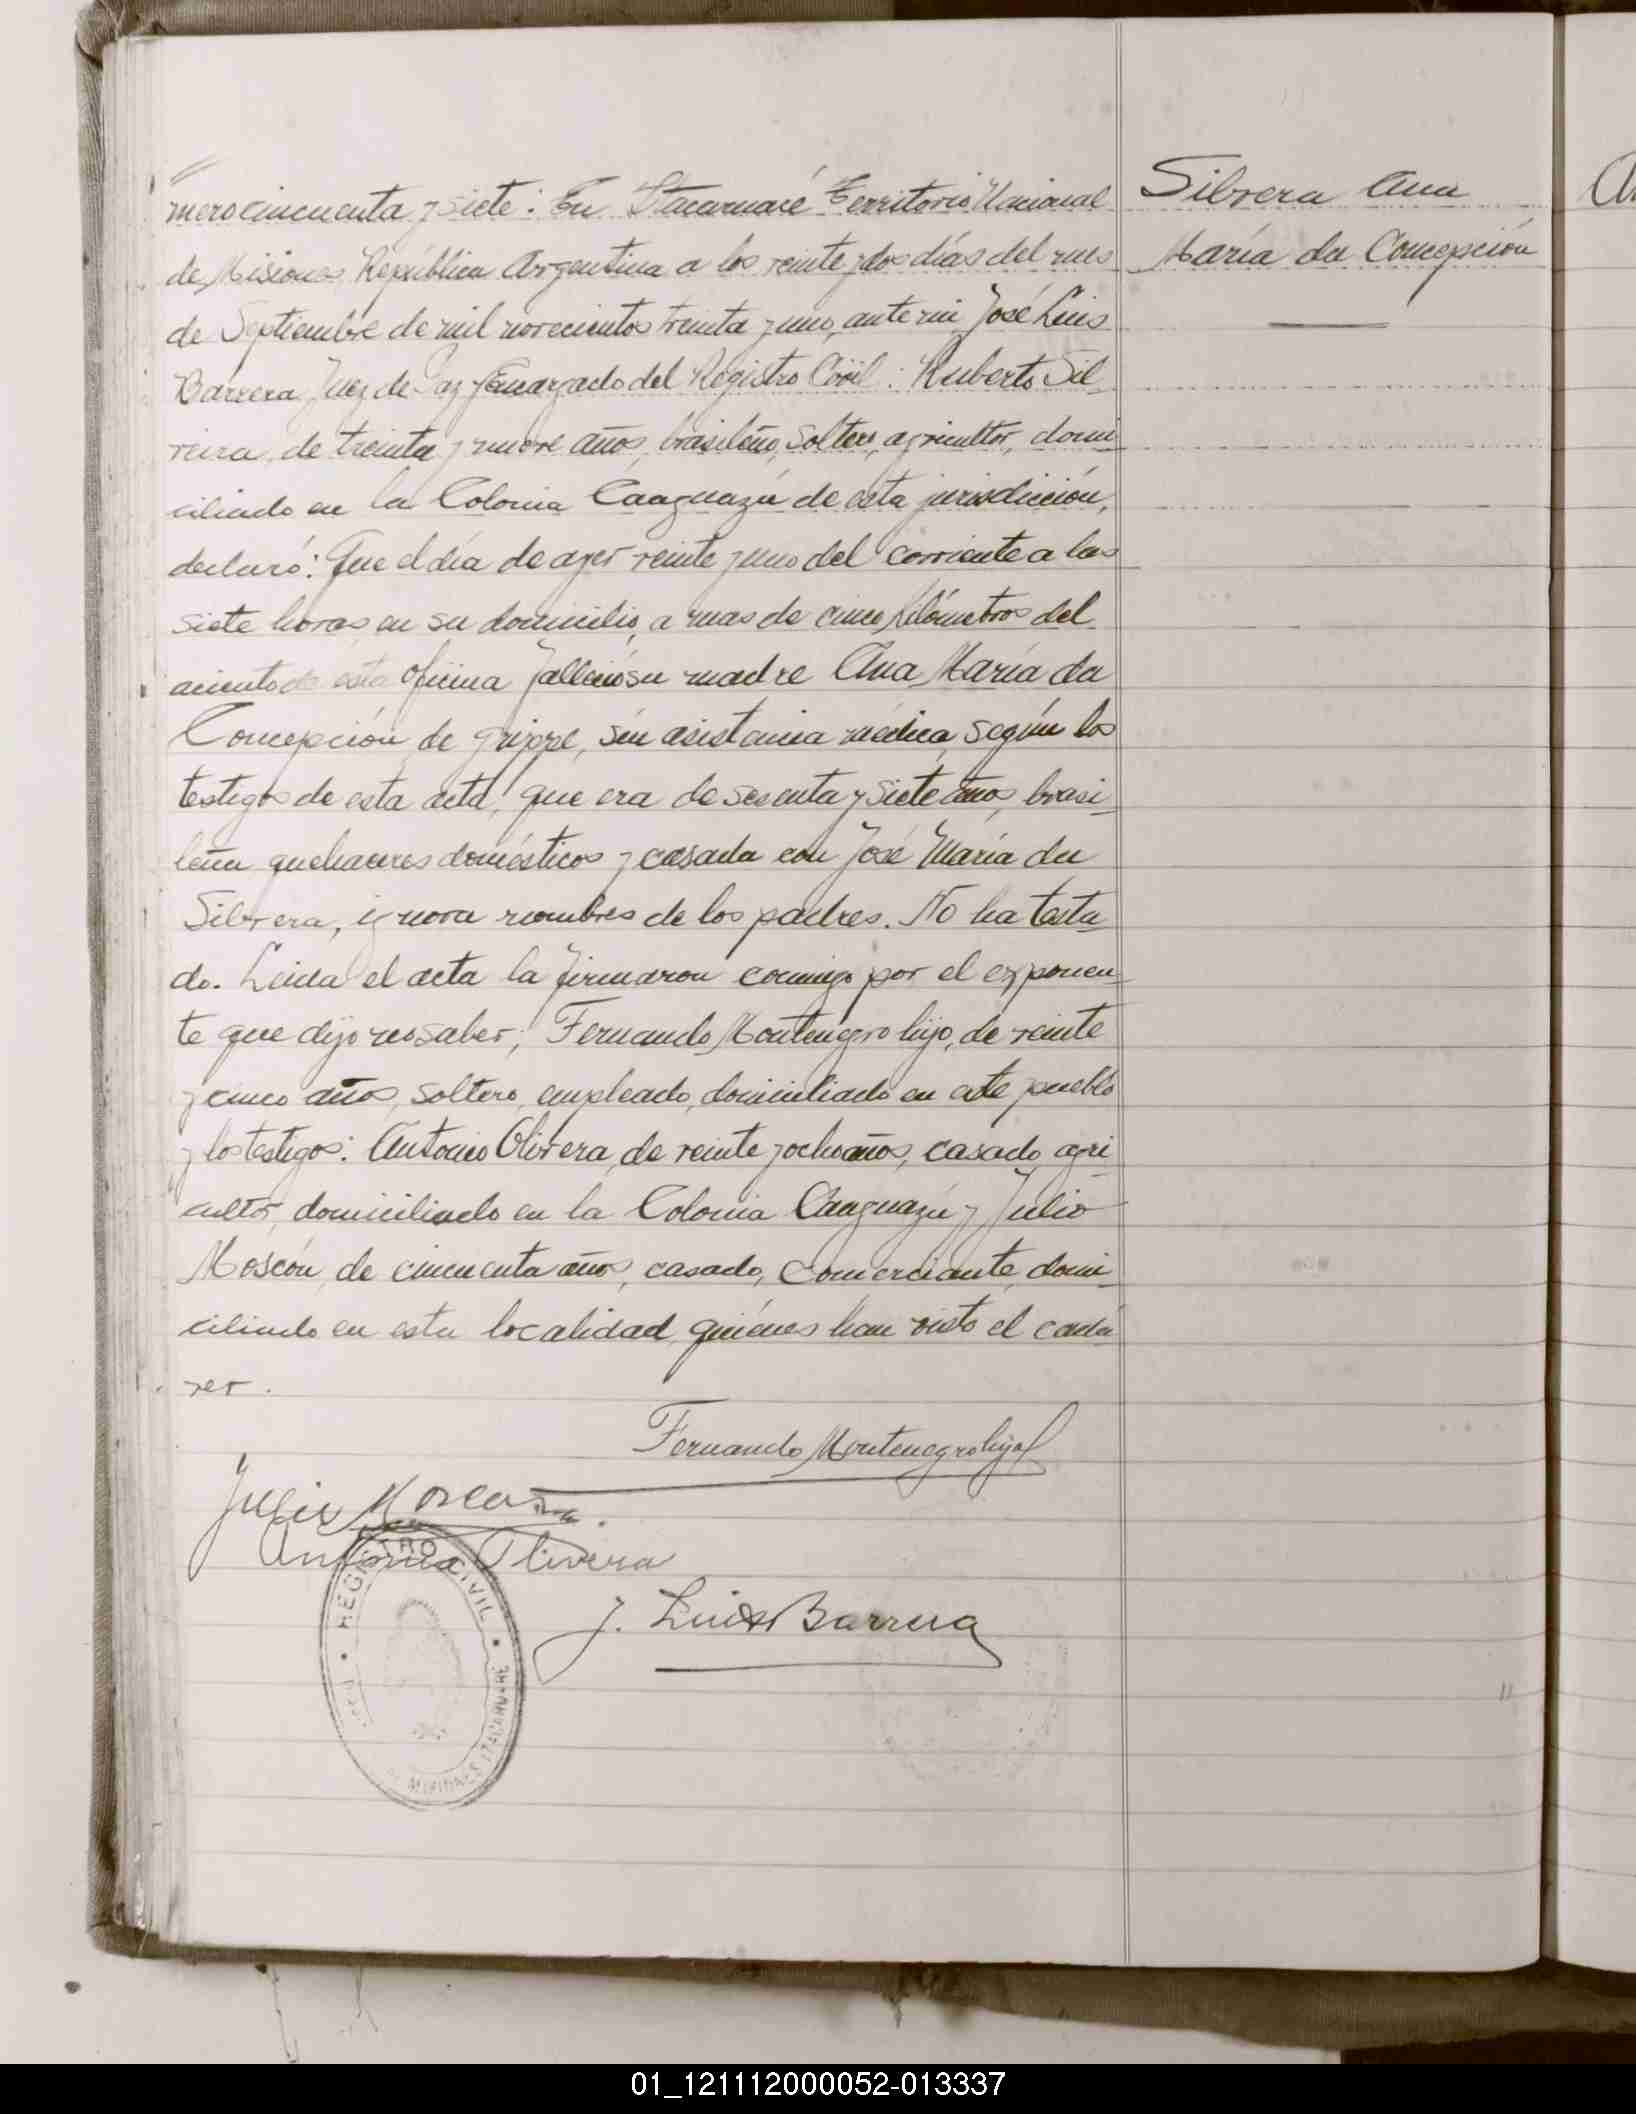 mero cincuenta y siete: En Itacaruaré Territorio Nacional
de Misiones República Argentina a los veinte y dos días del mes
de Septiembre de mil novecientos treinta y uno, ante mi José Luis
Barrera Juez de Paz Encargado del Registro Civil: Ruberto Sil
veira, de treinta y nueve años, brasileño, soltero, agricultor, domi
ciliado en la Colonia Caaguazú de esta jurisdicción,
declaró: Que el día de ayer veinte y uno del corriente a las
siete horas en su domicilio, a mas de cinco kilómetros del
asiento de esta oficina falleció su madre Ana María da
Concepción, de grippe, sin asistencia médica, según los
testigos de esta acta, que era de sesenta y siete años, brasi
leña quehaceres domésticos y casada con José María da
Silvera, ignora nombres de los padres. No ha testa
do. Leida el acta la firmaron conmigo por el exponen
te que dijo no saber, Fernando Montenegro hijo, de veinte
y cinco años, soltero, empleado, domiciliado en este pueblo
y los testigos: Antonio Olivera, de veinte y ocho años, casado, agri
cultor, domiciliado en la Colonia Caaguazú y Julio
Moscón, de cincuenta años, casado, comerciante, domi
ciliado en esta localidad, quiénes han visto el cadá
ver.
Silvera Ana
María da Concepción
Fernando Montenegro hijo
Julio Moscon
Antonio Olivera
J. Luis Barrera
REGISTRO CIVIL
MISIONES ITACARUARE
01_121112000052-013337